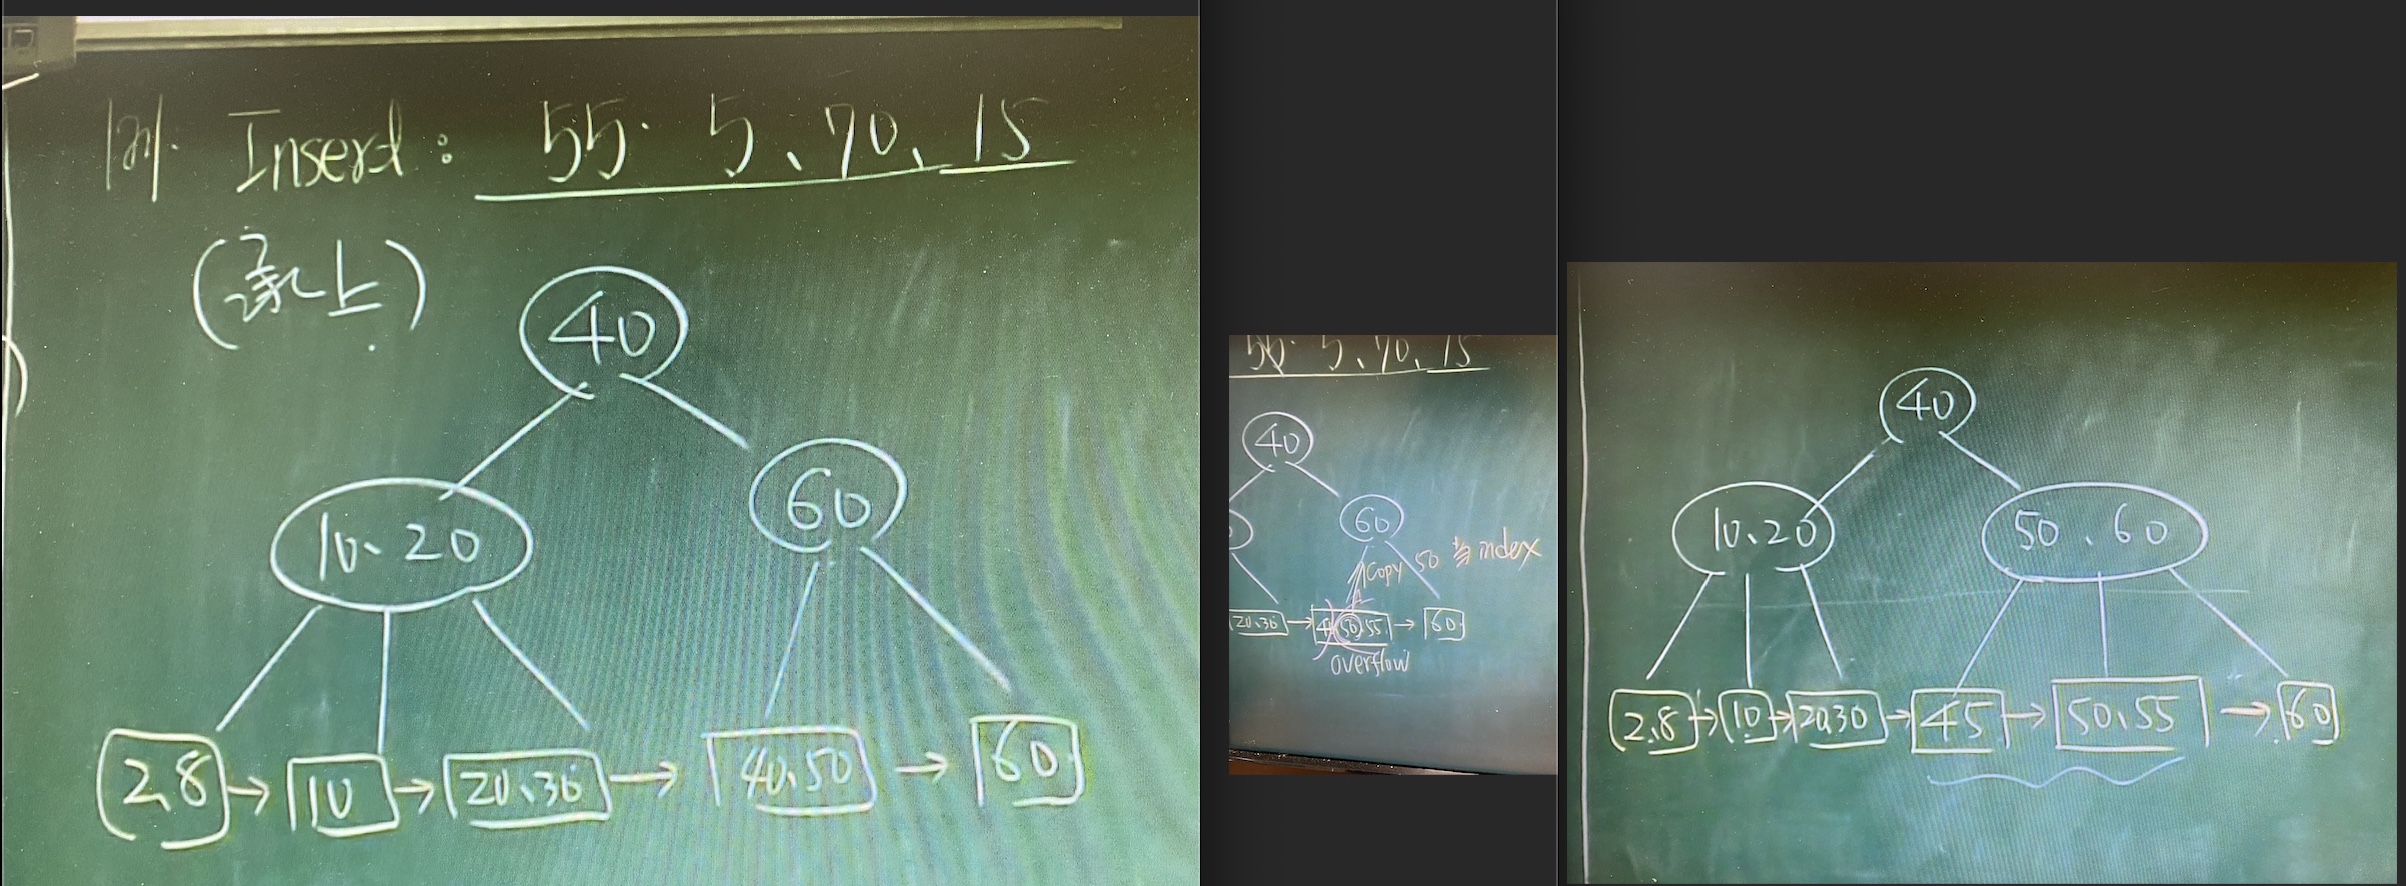 例. Insert: 55. 5、70、15
(承上)
40
10、20
60
2、8 → 10 → 20、30 → 40、50 → 60
55. 5、70、15
40
60
copy 50 当 index
20、30 → 50 55 → 60
overflow
40
10、20
50、60
2、8 → 10 → 20、30 → 45 → 50、55 → 60